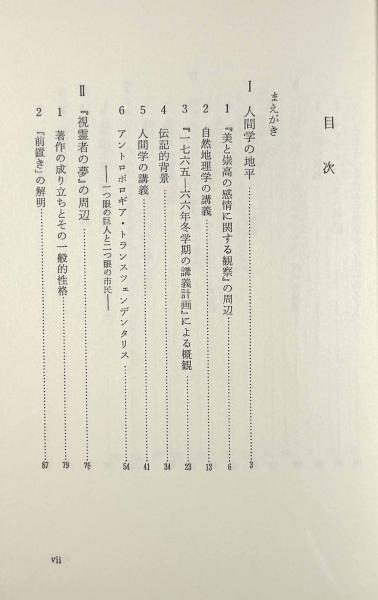 目次
まえがき
Ⅰ 人間学の地平……………3
1 『美と崇高の感情に関する観察』の周辺……………6
2 自然地理学の講義……………13
3 『一七六五—六六年冬学期の講義計画』による概観……………23
4 伝記的背景……………34
5 人間学の講義……………41
6 アントロポロギア・トランスツェンデンタリス……………54
——一つ眼の巨人と二つ眼の市民——
Ⅱ 『視霊者の夢』の周辺……………75
1 著作の成り立ちとその一般的性格……………79
2 「前置き」の解明……………87
vii